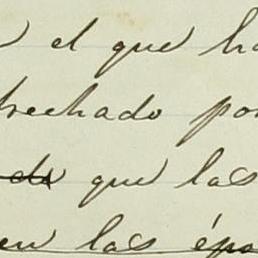 el que ha
trechado por
que las
en las épo